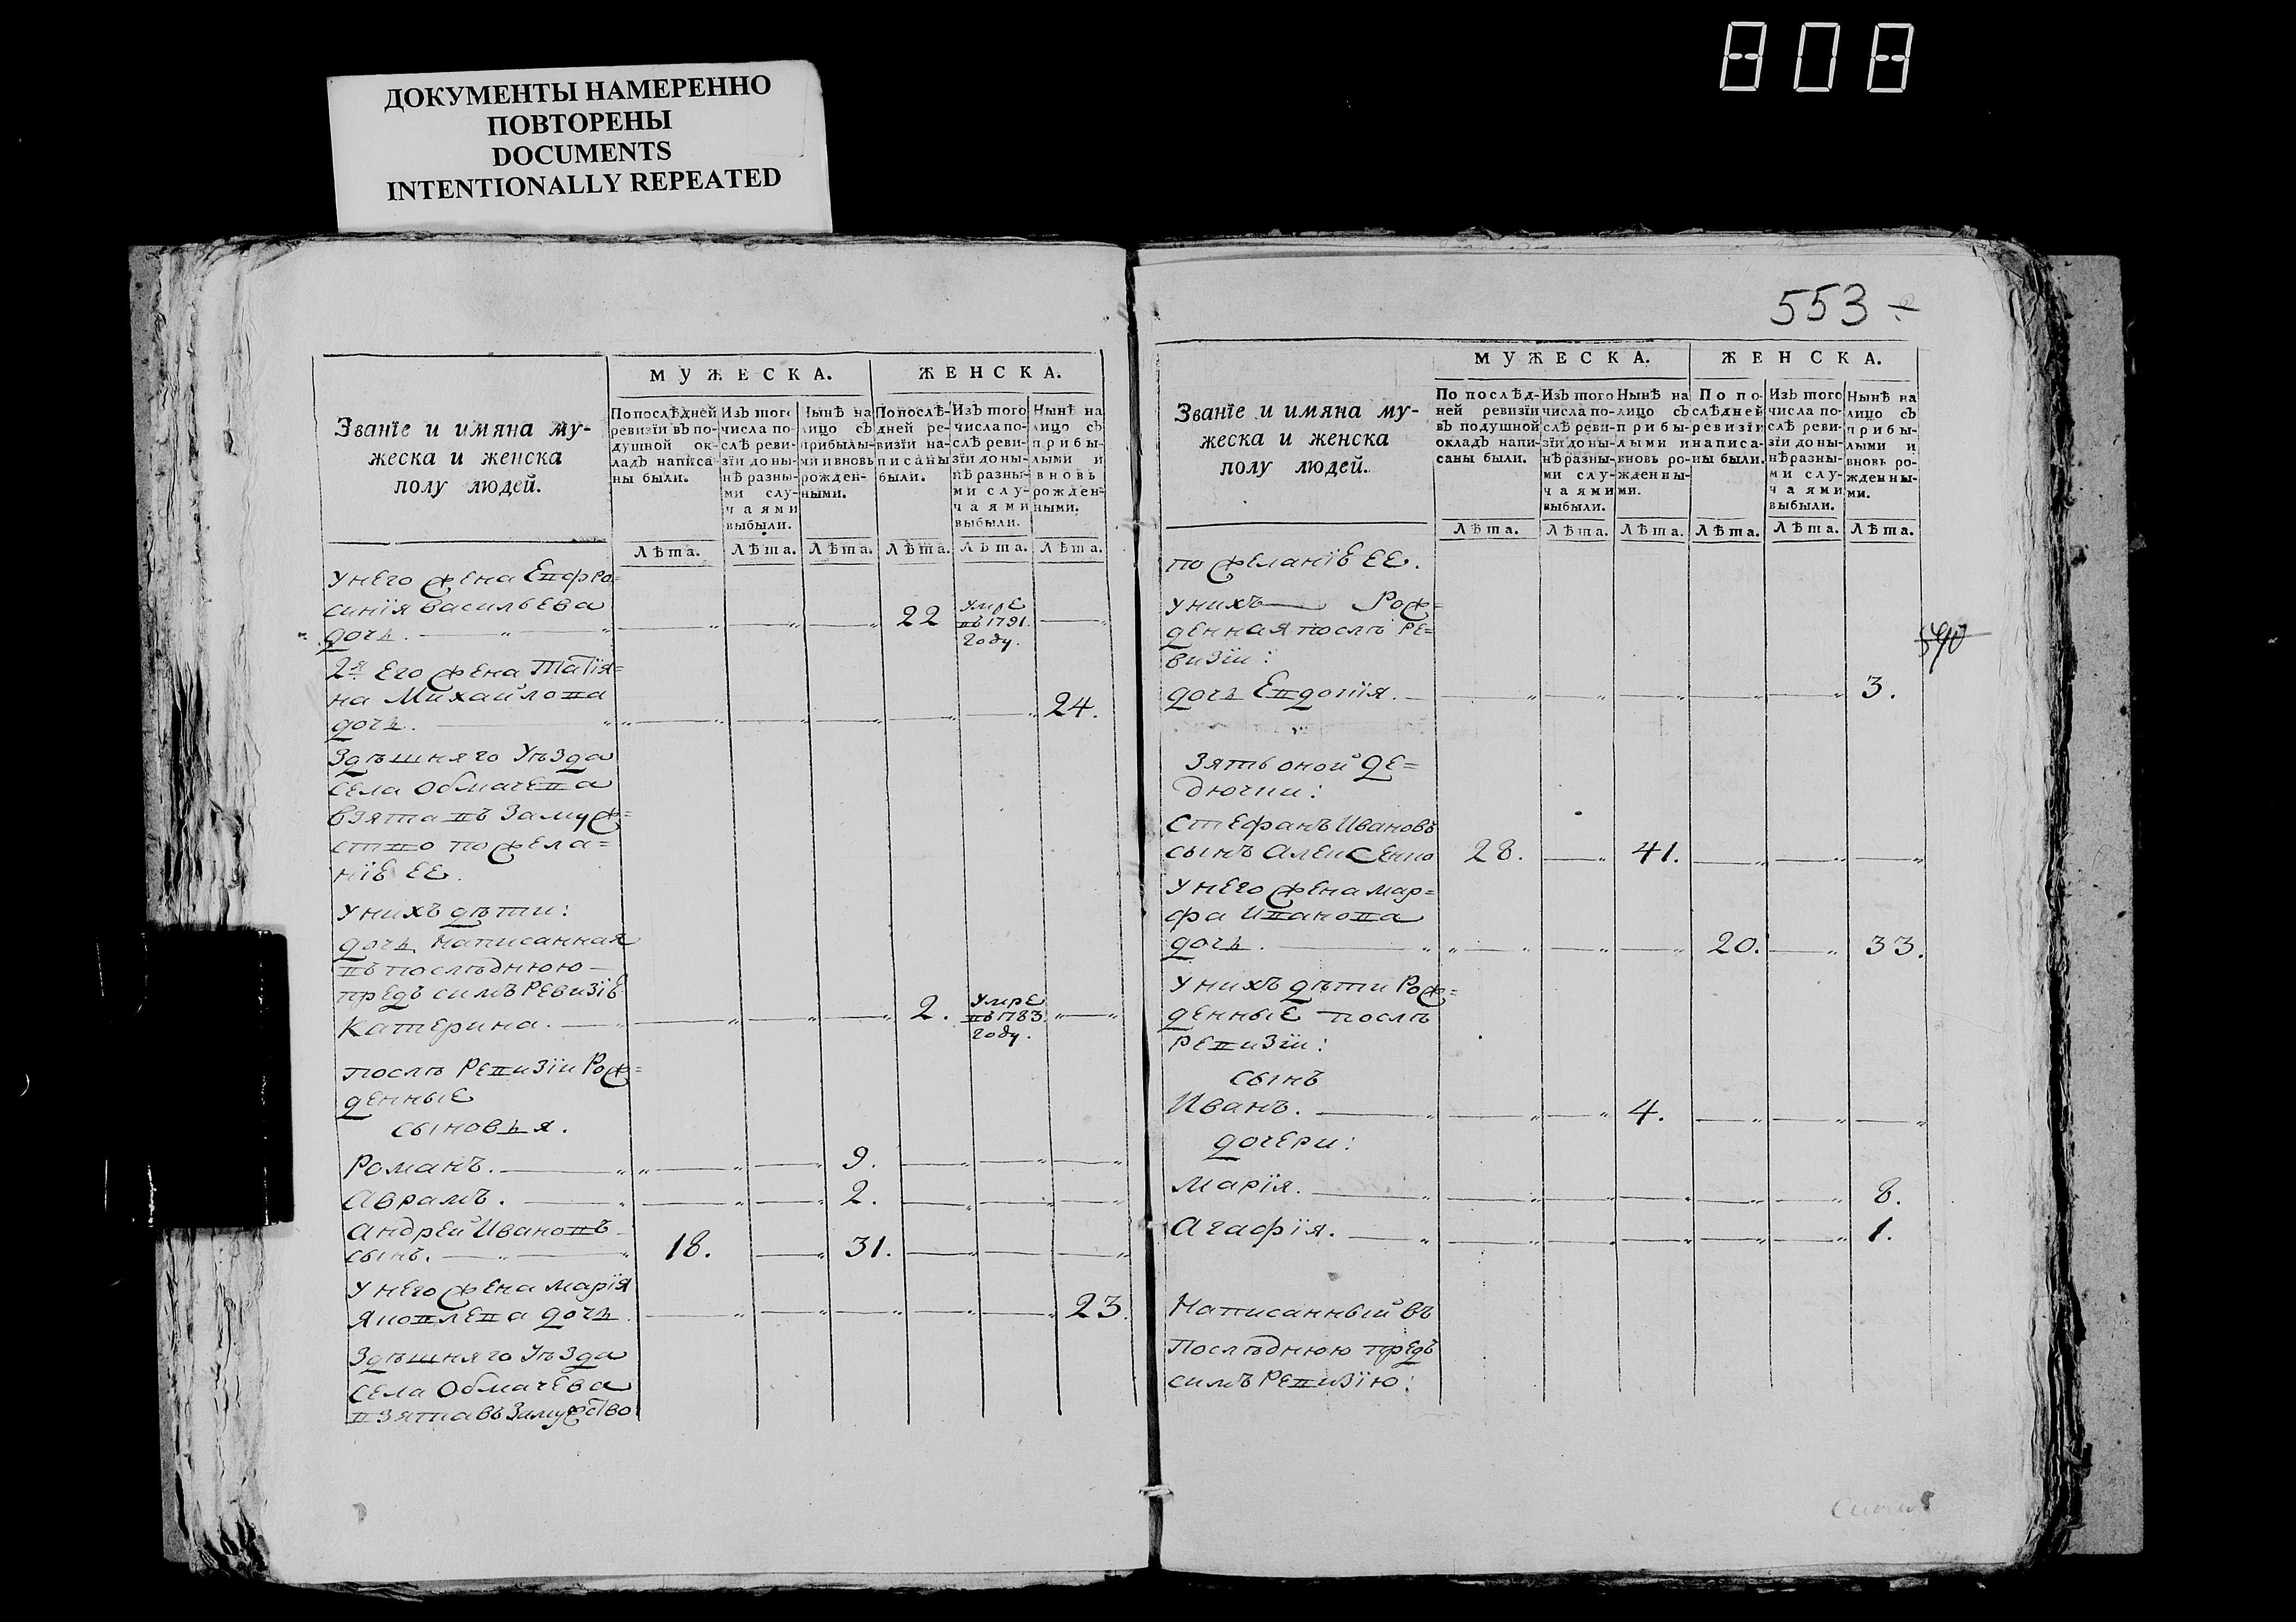 808
ДОКУМЕНТЫ НАМЕРЕННО
ПОВТОРЕНЫ
DOCUMENTS
INTENTIONALLY REPEATED
Званїе и имяна му-
жеска и женска
полу людей.
МУЖЕСКА.
ЖЕНСКА.
По послѣдней
ревизїи въ по-
душной ок-
ладъ написа
ны были.
Изъ того
числа по-
слѣ реви-
зїи до ны-
нѣ разны-
ми слу-
чаями
выбыли.
Нынѣ на
лицо съ
прибылы-
ми и вновь
рожден-
ными.
По послѣ-
дней ре-
визїи на-
писаны
были.
Изъ того
числа по-
слѣ реви-
зїи до ны-
нѣ разны-
ми слу-
чаями
выбыли.
Нынѣ на
лицо съ
прибы-
лыми и
вновь
рожден-
ными.
Лѣта. Лѣта. Лѣта. Лѣта. Лѣта. Лѣта.
У него жена Евфро=
синїя васильева
дочь. 22 умре въ 1791. году.
2я его жена Татїя=
на Михайлова
дочь. 24.
Здѣшняго Уѣзда
села Обмачева
взята въ Замуж=
ство по жела=
нїѣ ее.
У нихъ дѣти:
дочь написанная
въ послѣднюю
предъ симъ Ревизїѣ
Катерина. 2. умре въ 1783. году.
послѣ Ревизїи Рож=
денные
сыновья.
Романъ. 9.
Аврамъ. 2.
Андрей Ивановъ
сынъ. 18. 31.
У него жена Марїя
Яковлева дочь 23.
Здѣшняго Уѣзда
села Обмачева
взята въ Замужство
553
Званїе и имяна му-
жеска и женска
полу людей.
МУЖЕСКА.
ЖЕНСКА.
По послѣд-
ней ревизїи
въ подушной
окладъ напи-
саны были.
Изъ того
числа по-
слѣ реви-
зїи до ны-
нѣ разны-
ми слу-
чаями
выбыли.
Нынѣ на
лицо съ
прибы-
лыми и
вновь ро-
жденны-
ми.
По по-
слѣдней
ревизїи
написа-
ны были.
Изъ того
числа по-
слѣ реви-
зїи до ны-
нѣ разны-
ми слу-
чаями
выбыли.
Нынѣ на
лицо съ
прибы-
лыми и
вновь ро-
жденны-
ми.
Лѣта. Лѣта. Лѣта. Лѣта. Лѣта. Лѣта.
по желанїѣ ее.
У нихъ Рож=
денная послѣ Ре=
визїи:
дочь Евдокїя. 3.
Зять оной Де=
дючки:
Стефанъ Ивановъ
сынъ Алексенко 28. 41.
У него жена Мар=
фа Иванова
дочь. 20. 33.
У нихъ дѣти Рож=
денные послѣ
Ревизїи:
сынъ
Иванъ. 4.
дочери:
Марїя. 8.
Агафїя. 1.
Написанный въ
Послѣднюю предъ
симъ Ревизїю: